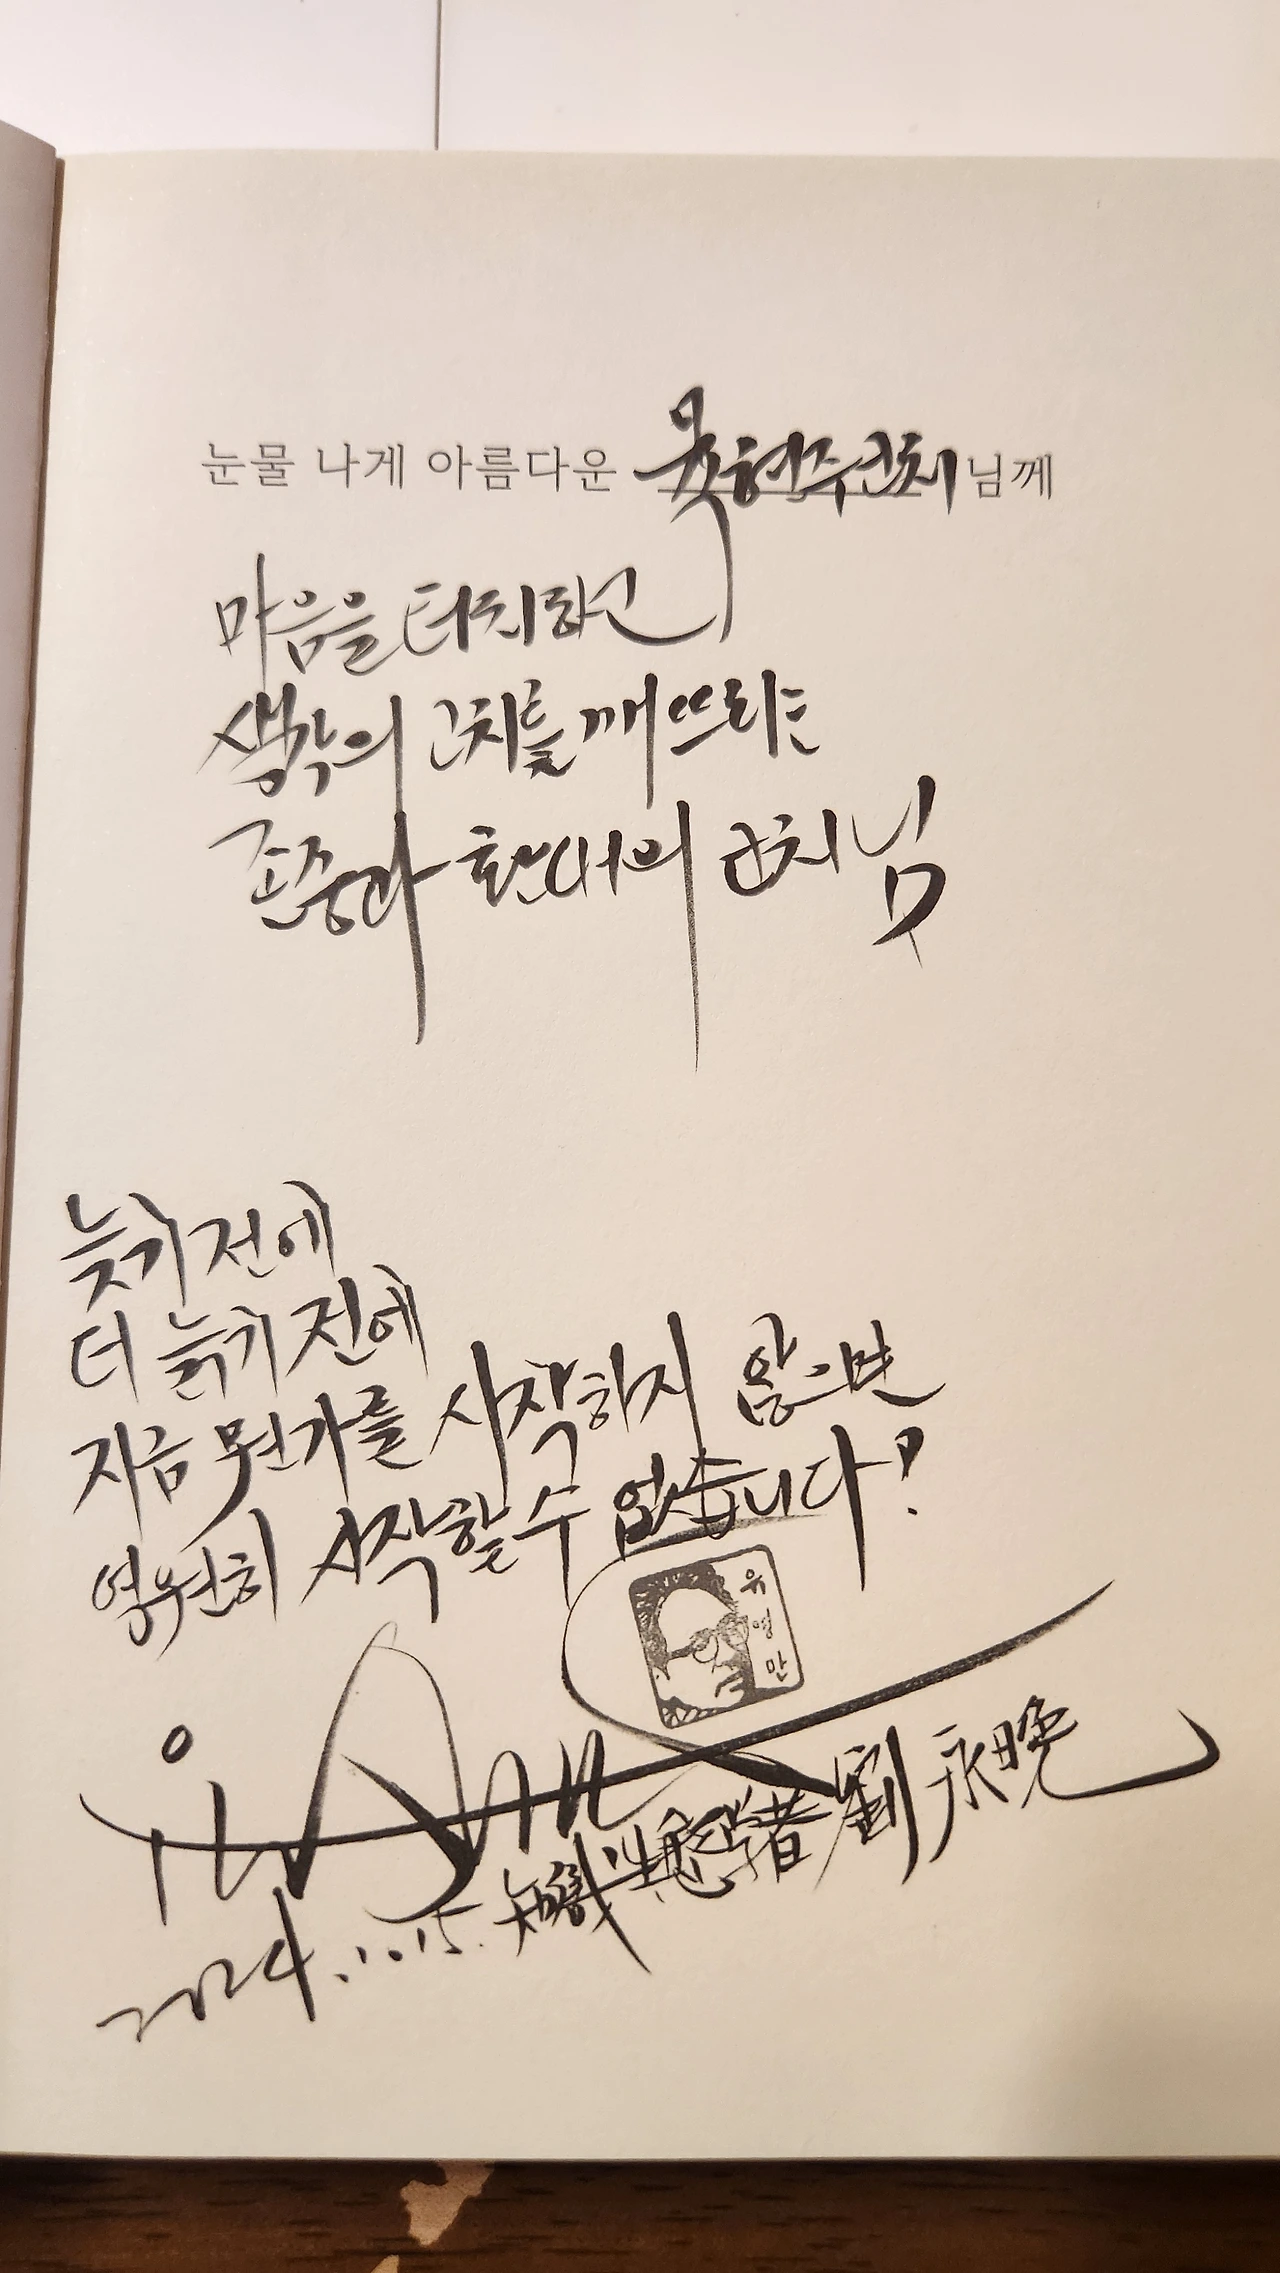 눈물 나게 아름다운 목현주코치 님께
마음을 터치하고
생각의 고치를 깨뜨리는
존중과 환대의 코치님
늙기 전에
더 늙기 전에
지금 뭔가를 시작하지 않으면
영원히 시작할 수 없습니다!
유영만
2024.10.15. 知識生態學者 劉永晩